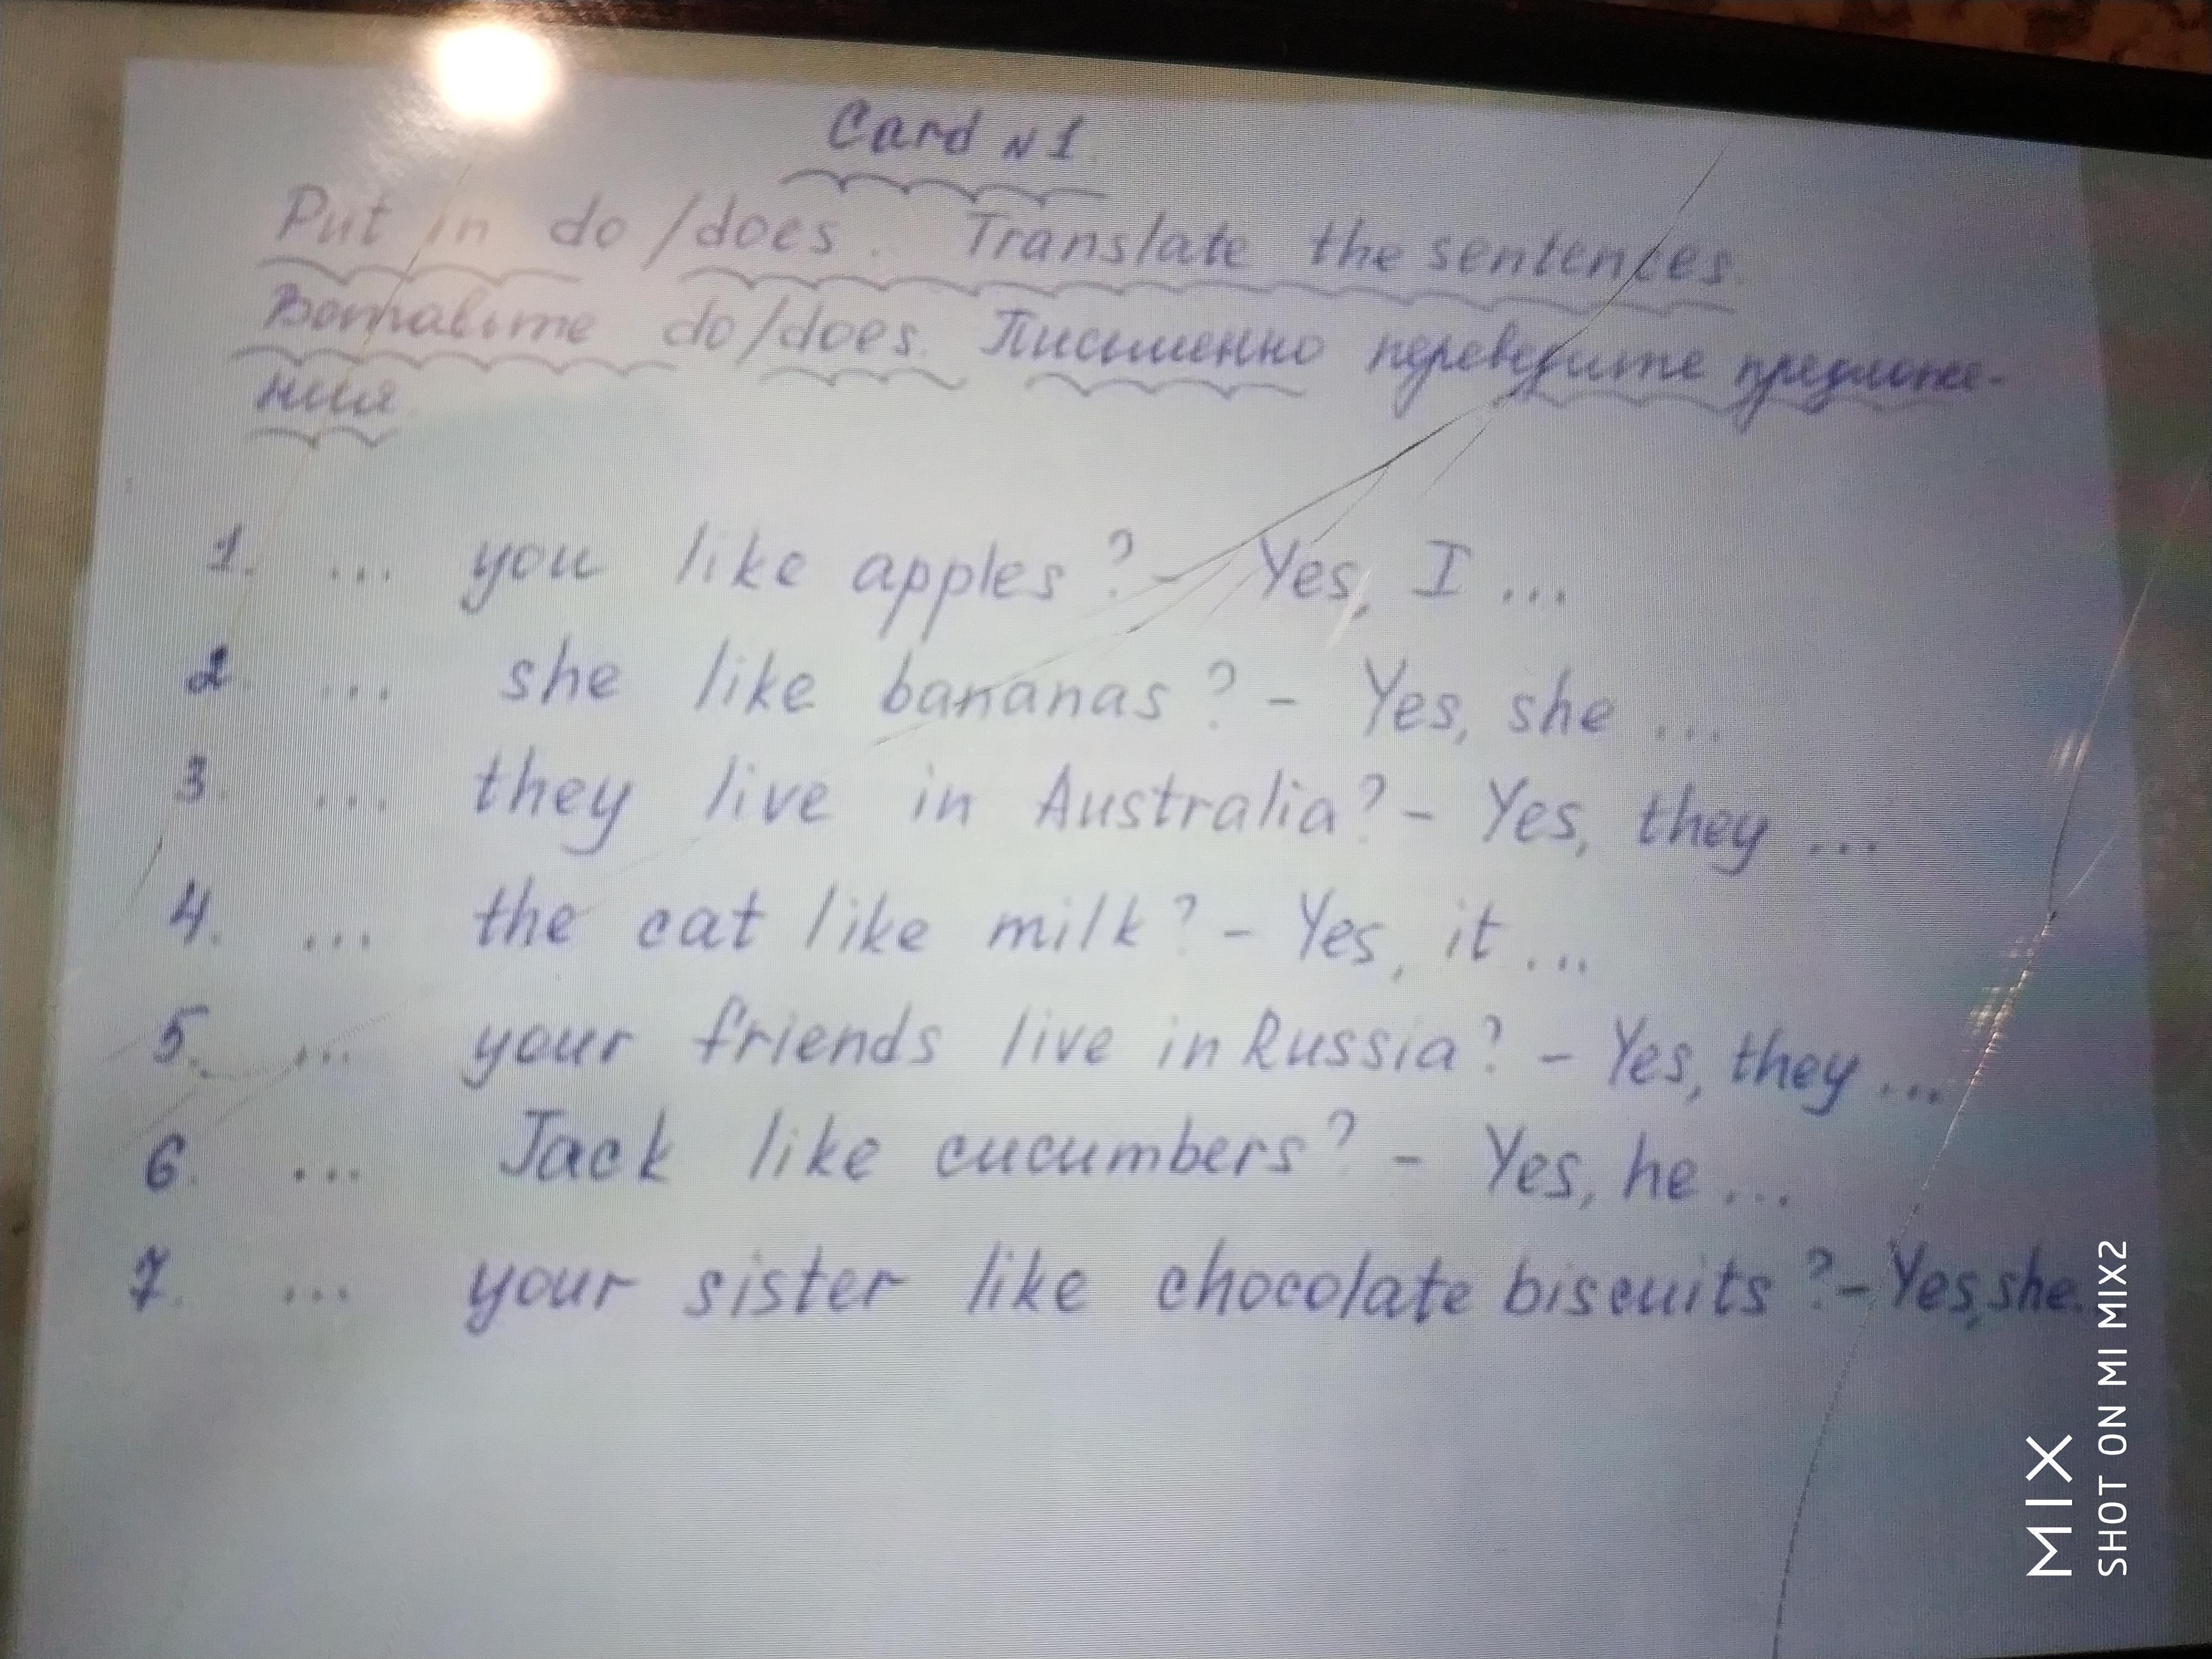 Card №1.
Put in do/does. Translate the sentences.
Вставьте do/does. Письменно переведите предложе-
ния.
1. ... you like apples? - Yes, I ...
2. ... she like bananas? - Yes, she ...
3. ... they live in Australia? - Yes, they ...
4. ... the cat like milk? - Yes, it ...
5. ... your friends live in Russia? - Yes, they ...
6. ... Jack like cucumbers? - Yes, he ...
7. ... your sister like chocolate biscuits? - Yes, she.
MIX
SHOT ON MI MIX2